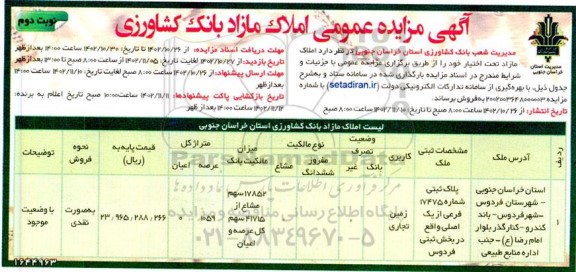 آگهی مزایده عمومی املاک مازاد بانک کشاورزی
نوبت دوم
مدیریت استان
خراسان جنوبی
مدیریت شعب بانک کشاورزی استان خراسان جنوبی در نظر دارد املاک
مازاد تحت اختیار خود را از طریق برگزاری مزایده عمومی با جزئیات و
شرایط مندرج در اسناد مزایده بارگذاری شده در سامانه ستاد و بشرح
جدول ذیل، با بهره‌گیری از سامانه تدارکات الکترونیکی دولت (setadiran.ir) با شماره
مزایده به‌فروش برساند.
تاریخ انتشار: از ۱۴۰۲/۱۰/۲۶ ساعت ۸:۰۰ صبح
مهلت دریافت اسناد مزایده: از ۱۴۰۲/۱۰/۲۶ تا تاریخ: ۱۴۰۲/۱۰/۳۰ ساعت ۱۴:۰۰ بعدازظهر
تاریخ بازدید: از ۱۴۰۲/۱۰/۲۷ لغایت تاریخ: ۱۴۰۲/۱۱/۰۵ از ساعت ۸:۰۰ صبح تا ۱۳:۰۰ بعدازظهر
مهلت ارسال پیشنهاد: از ۱۴۰۲/۱۰/۲۶ ساعت ۸:۰۰ صبح لغایت تاریخ: ۱۴۰۲/۱۱/۱۰ ساعت ۱۴:۰۰
بعد از ظهر
تاریخ بازگشایی پاکت پیشنهادها: ۱۴۰۲/۱۱/۱۱ ساعت ۱۰:۰۰ صبح تاریخ اعلام به برنده:
۱۴۰۲/۱۱/۱۲ ساعت ۱۴:۰۰ بعد از ظهر
لیست املاک مازاد بانک کشاورزی استان خراسان جنوبی
ردیف
آدرس ملک
مشخصات ثبتی ملک
کاربری
وضعیت تصرف
بانک
غیر
نوع مالکیت
مفروز ششدانگ
مشاع
میزان مالکیت بانک
متراژ کل
عرصه
اعیان
قیمت پایه به (ریال)
نحوه فروش
توضیحات
۱
استان خراسان جنوبی - شهرستان فردوس - شهر فردوس - باند کندرو - کنارگذر بلوار امام رضا (ع) - جنب اداره منابع طبیعی
پلاک ثبتی شماره ۱۷۴۷۵ فرعی از یک اصلی واقع در بخش ثبتی فردوس
زمین تجاری
۱۷۸۵۲ سهم مشاع از ۴۱۷۱۵ سهم کل عرصه و اعیان
۱۰۵۹
۰
۲۳,۹۶۵,۲۸۸,۲۶۶
به‌صورت نقدی
با وضعیت موجود
۰۲۱-۸۸۳۴۹۶۷۰-۵
۱۶۴۴۸۹۶۳